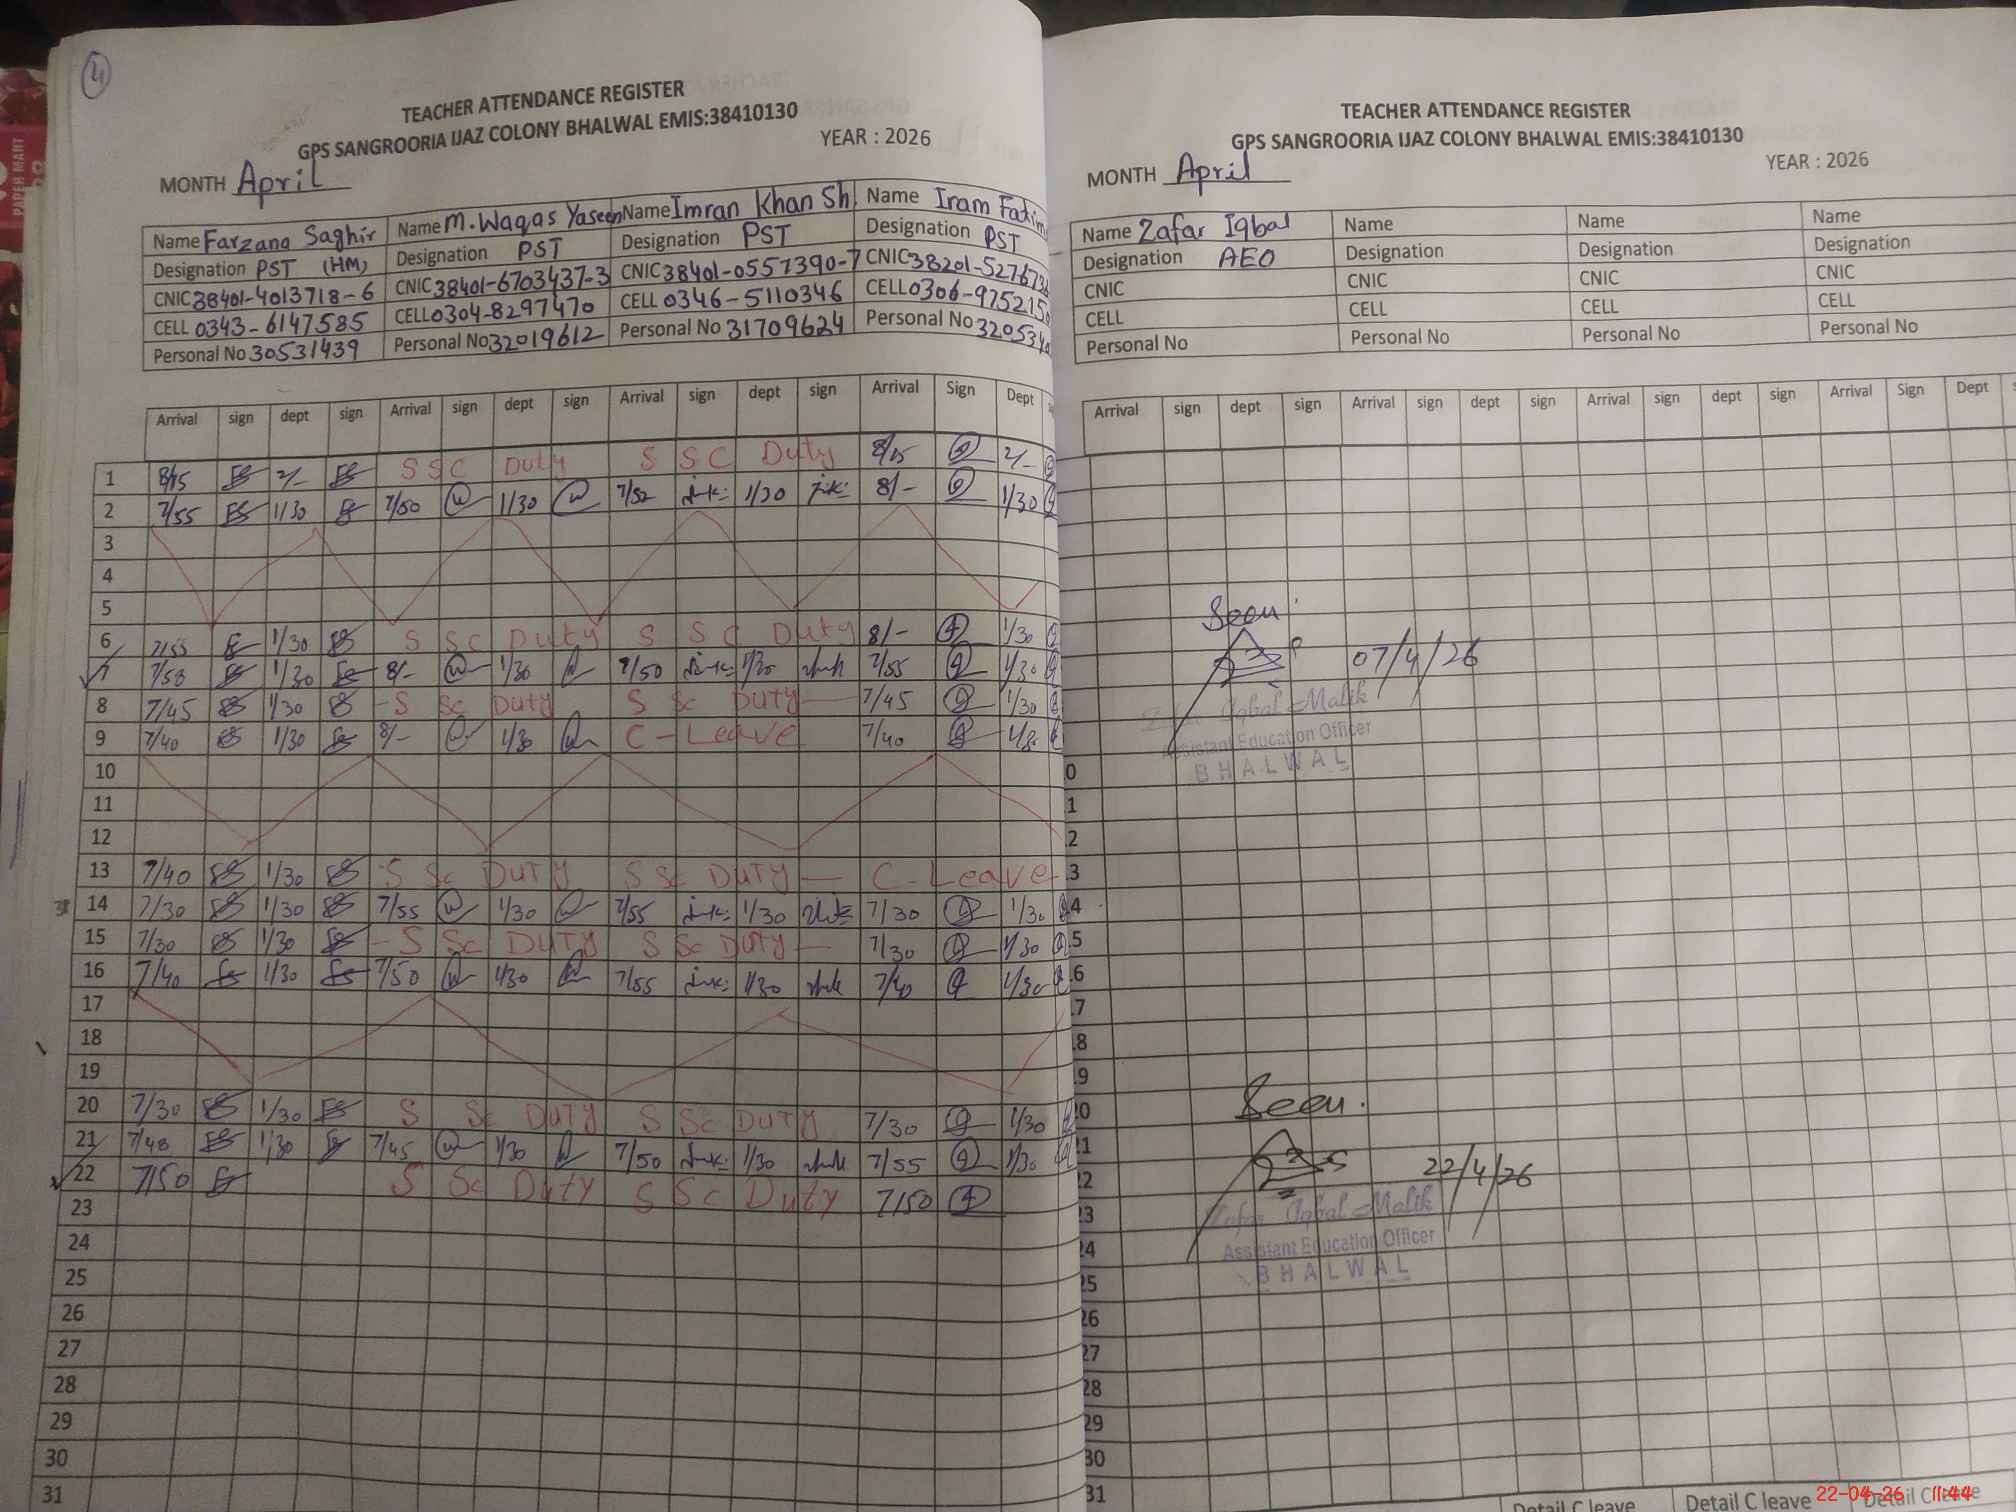 4
TEACHER ATTENDANCE REGISTER
GPS SANGROORIA IJAZ COLONY BHALWAL EMIS:38410130
YEAR : 2026
MONTH April
Name Farzana Saghir Name M. Waqas Yaseen Name Imran Khan Sh. Name Iram Fatim
Designation PST (HM) Designation PST Designation PST Designation PST
CNIC 38401-4013718-6 CNIC 38401-6703437-3 CNIC 38401-0557390-7 CNIC 38201-527673
CELL 0343-6147585 CELL 0304-8297470 CELL 0346-5110346 CELL 0306-975215
Personal No 30531439 Personal No 32019612 Personal No 31709624 Personal No 320534
Arrival sign dept sign Arrival sign dept sign Arrival sign dept sign Arrival Sign Dept
1 8/15 2/- SSC Duty SSC Duty 8/15 2/-
2 7/55 1/30 7/50 1/30 7/52 1/30 8/- 1/30
3
4
5
6 7/55 1/30 SSC Duty SSC Duty 8/- 1/30
7 7/58 1/30 8/- 1/30 7/50 1/30 7/55 1/30
8 7/45 1/30 SSC Duty SSC Duty 7/45 1/30
9 7/40 1/30 8/- 1/30 C-Leave 7/40 1/30
10
11
12
13 7/40 1/30 SSC DUTY SSC DUTY C-Leave
14 7/30 1/30 7/55 1/30 7/55 1/30 7/30 1/30
15 7/30 1/30 SSC DUTY SSC DUTY 7/30 1/30
16 7/40 1/30 7/50 1/30 7/55 1/30 7/40 1/30
17
18
19
20 7/30 1/30 SSC DUTY SSC DUTY 7/30 1/30
21 7/48 1/30 7/45 1/30 7/50 1/30 7/55 1/30
22 7/50 SSC Duty SSC Duty 7/50
23
24
25
26
27
28
29
30
31
TEACHER ATTENDANCE REGISTER
GPS SANGROORIA IJAZ COLONY BHALWAL EMIS:38410130
YEAR : 2026
MONTH April
Name Zafar Iqbal Name Name Name
Designation AEO Designation Designation Designation
CNIC CNIC CNIC CNIC
CELL CELL CELL CELL
Personal No Personal No Personal No Personal No
Arrival sign dept sign Arrival sign dept sign Arrival sign dept sign Arrival Sign Dept
Seen.
07/4/26
Zafar Iqbal Malik
Assistant Education Officer
BHALWAL
0
1
2
3
4
5
6
7
8
9
20
21
22
23
24
25
26
27
28
29
30
31
Seen.
22/4/26
Zafar Iqbal Malik
Assistant Education Officer
BHALWAL
Detail C leave Detail C leave Detail C leave
22-04-26 11:44
PAPER MART